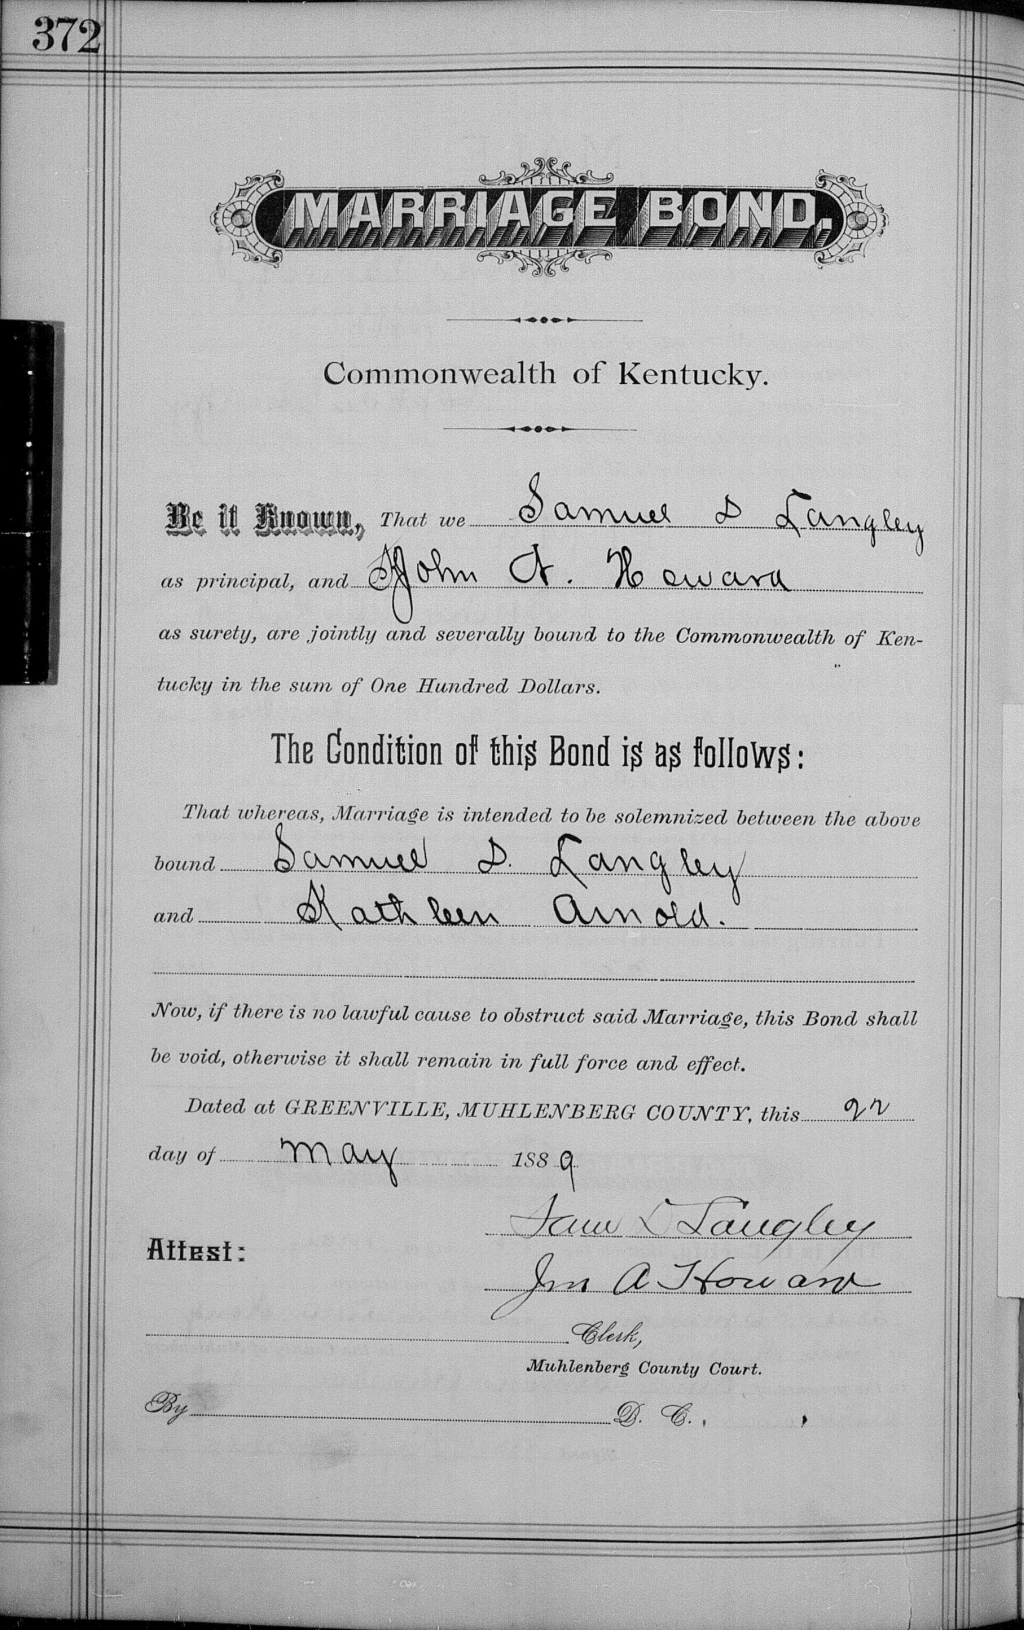 372
MARRIAGE BOND.
Commonwealth of Kentucky.
Be it Known, That we Samuel D Langley
as principal, and John A. Howard
as surety, are jointly and severally bound to the Commonwealth of Ken-
tucky in the sum of One Hundred Dollars.
The Condition of this Bond is as follows:
That whereas, Marriage is intended to be solemnized between the above
bound Samuel D. Langley
and Kathleen Arnold.
Now, if there is no lawful cause to obstruct said Marriage, this Bond shall
be void, otherwise it shall remain in full force and effect.
Dated at GREENVILLE, MUHLENBERG COUNTY, this 22
day of May 1889
Sam D Langley
Attest:
Jno A Howard
Clerk,
Muhlenberg County Court.
By D. C.